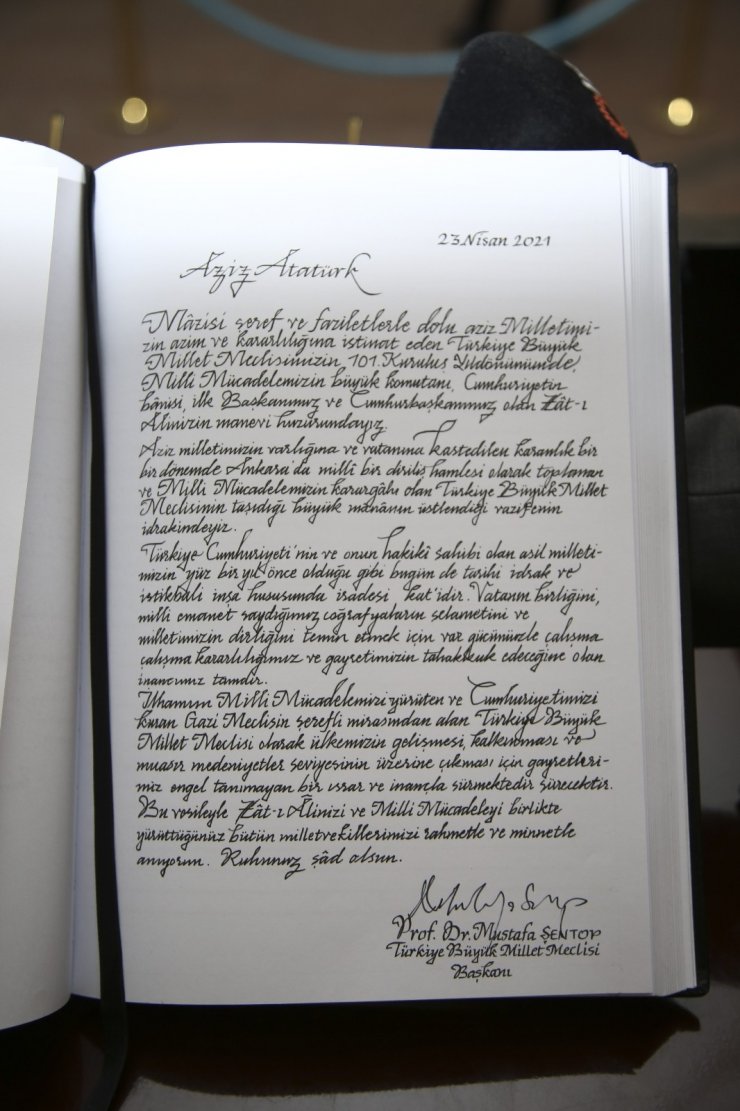 23 Nisan 2021
Aziz Atatürk
Mâzisi şeref ve faziletlerle dolu aziz Milletimi-
zin azim ve kararlılığına istinat eden Türkiye Büyük
Millet Meclisimizin 101. Kuruluş Yıldönümünde,
Millî Mücadelemizin büyük komutanı, Cumhuriyetin
bânisi, ilk Başkanımız ve Cumhurbaşkanımız olan Zât-ı
Âlinizin manevi huzurundayız.
Aziz milletimizin varlığına ve vatanına kastedilen karanlık bir
bir dönemde Ankara'da millî bir diriliş hamlesi olarak toplanan
ve Millî Mücadelemizin karargâhı olan Türkiye Büyük Millet
Meclisinin taşıdığı büyük mânânın üstlendiği vazifenin
idrakindeyiz.
Türkiye Cumhuriyeti'nin ve onun hakikî sahibi olan asil milleti-
mizin yüz bir yıl önce olduğu gibi bugün de tarihi idrak ve
istikbali inşa hususunda iradesi kat'idir. Vatanın birliğini,
milli emanet saydığımız coğrafyaların selametini ve
milletimizin dirliğini temin etmek için var gücümüzle çalışma
çalışma kararlılığımız ve gayretimizin tahakkuk edeceğine olan
inancımız tamdır.
İlhamını Millî Mücadelemizi yürüten ve Cumhuriyetimizi
kuran Gazi Meclisin şerefli mirasından alan Türkiye Büyük
Millet Meclisi olarak ülkemizin gelişmesi, kalkınması ve
muasır medeniyetler seviyesinin üzerine çıkması için gayretleri-
miz engel tanımayan bir ısrar ve inançla sürmektedir sürecektir.
Bu vesileyle Zât-ı Âlinizi ve Milli Mücadeleyi birlikte
yürüttüğünüz bütün milletvekillerimizi rahmetle ve minnetle
anıyorum. Ruhunuz şâd olsun.
Prof. Dr. Mustafa ŞENTOP
Türkiye Büyük Millet Meclisi
Başkanı